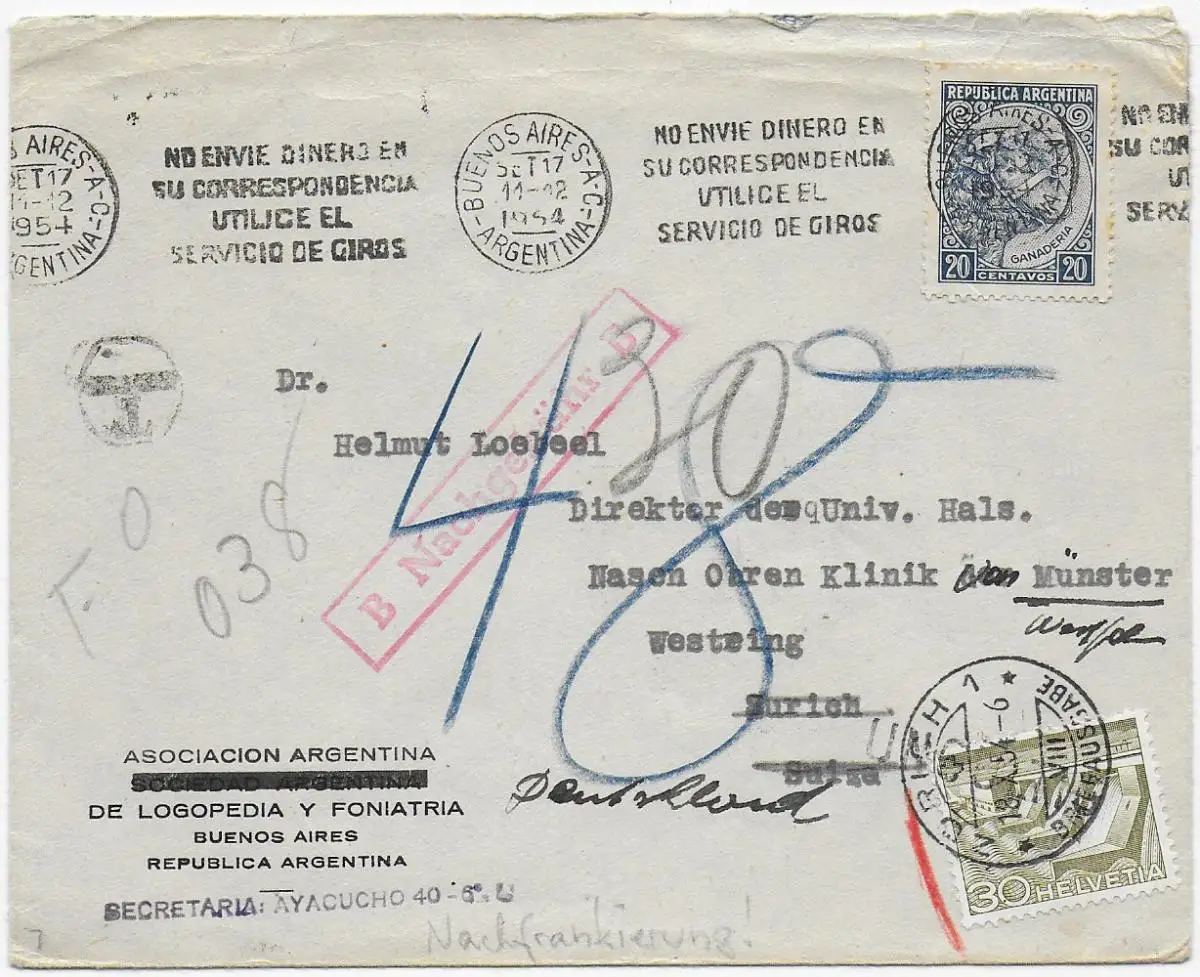 S AIRES-A-C-
SET 17
11-12
1954
ARGENTINA
NO ENVIE DINERO EN
SU CORRESPONDENCIA
UTILICE EL
SERVICIO DE GIROS
BUENOS AIRES-A-C-
SET 17
11-12
1954
ARGENTINA
NO ENVIE DINERO EN
SU CORRESPONDENCIA
UTILICE EL
SERVICIO DE GIROS
REPUBLICA ARGENTINA
GANADERIA
20 CENTAVOS 20
NO EN
SU COR
U
SERV
T
Dr.
Helmut Loebeel
48
20
B Nachgebühr B
Direktor des Univ. Hals.
Nasen Ohren Klinik von Münster
Westf
Westring
Zurich
Suiza
Deutschland
F. 0
038
ZÜRICH 1
BRIEFAUSGABE
VIII
30 HELVETIA
ASOCIACION ARGENTINA
SOCIEDAD ARGENTINA
DE LOGOPEDIA Y FONIATRIA
BUENOS AIRES
REPUBLICA ARGENTINA
SECRETARIA: AYACUCHO 40
Nachfrankierung!
7